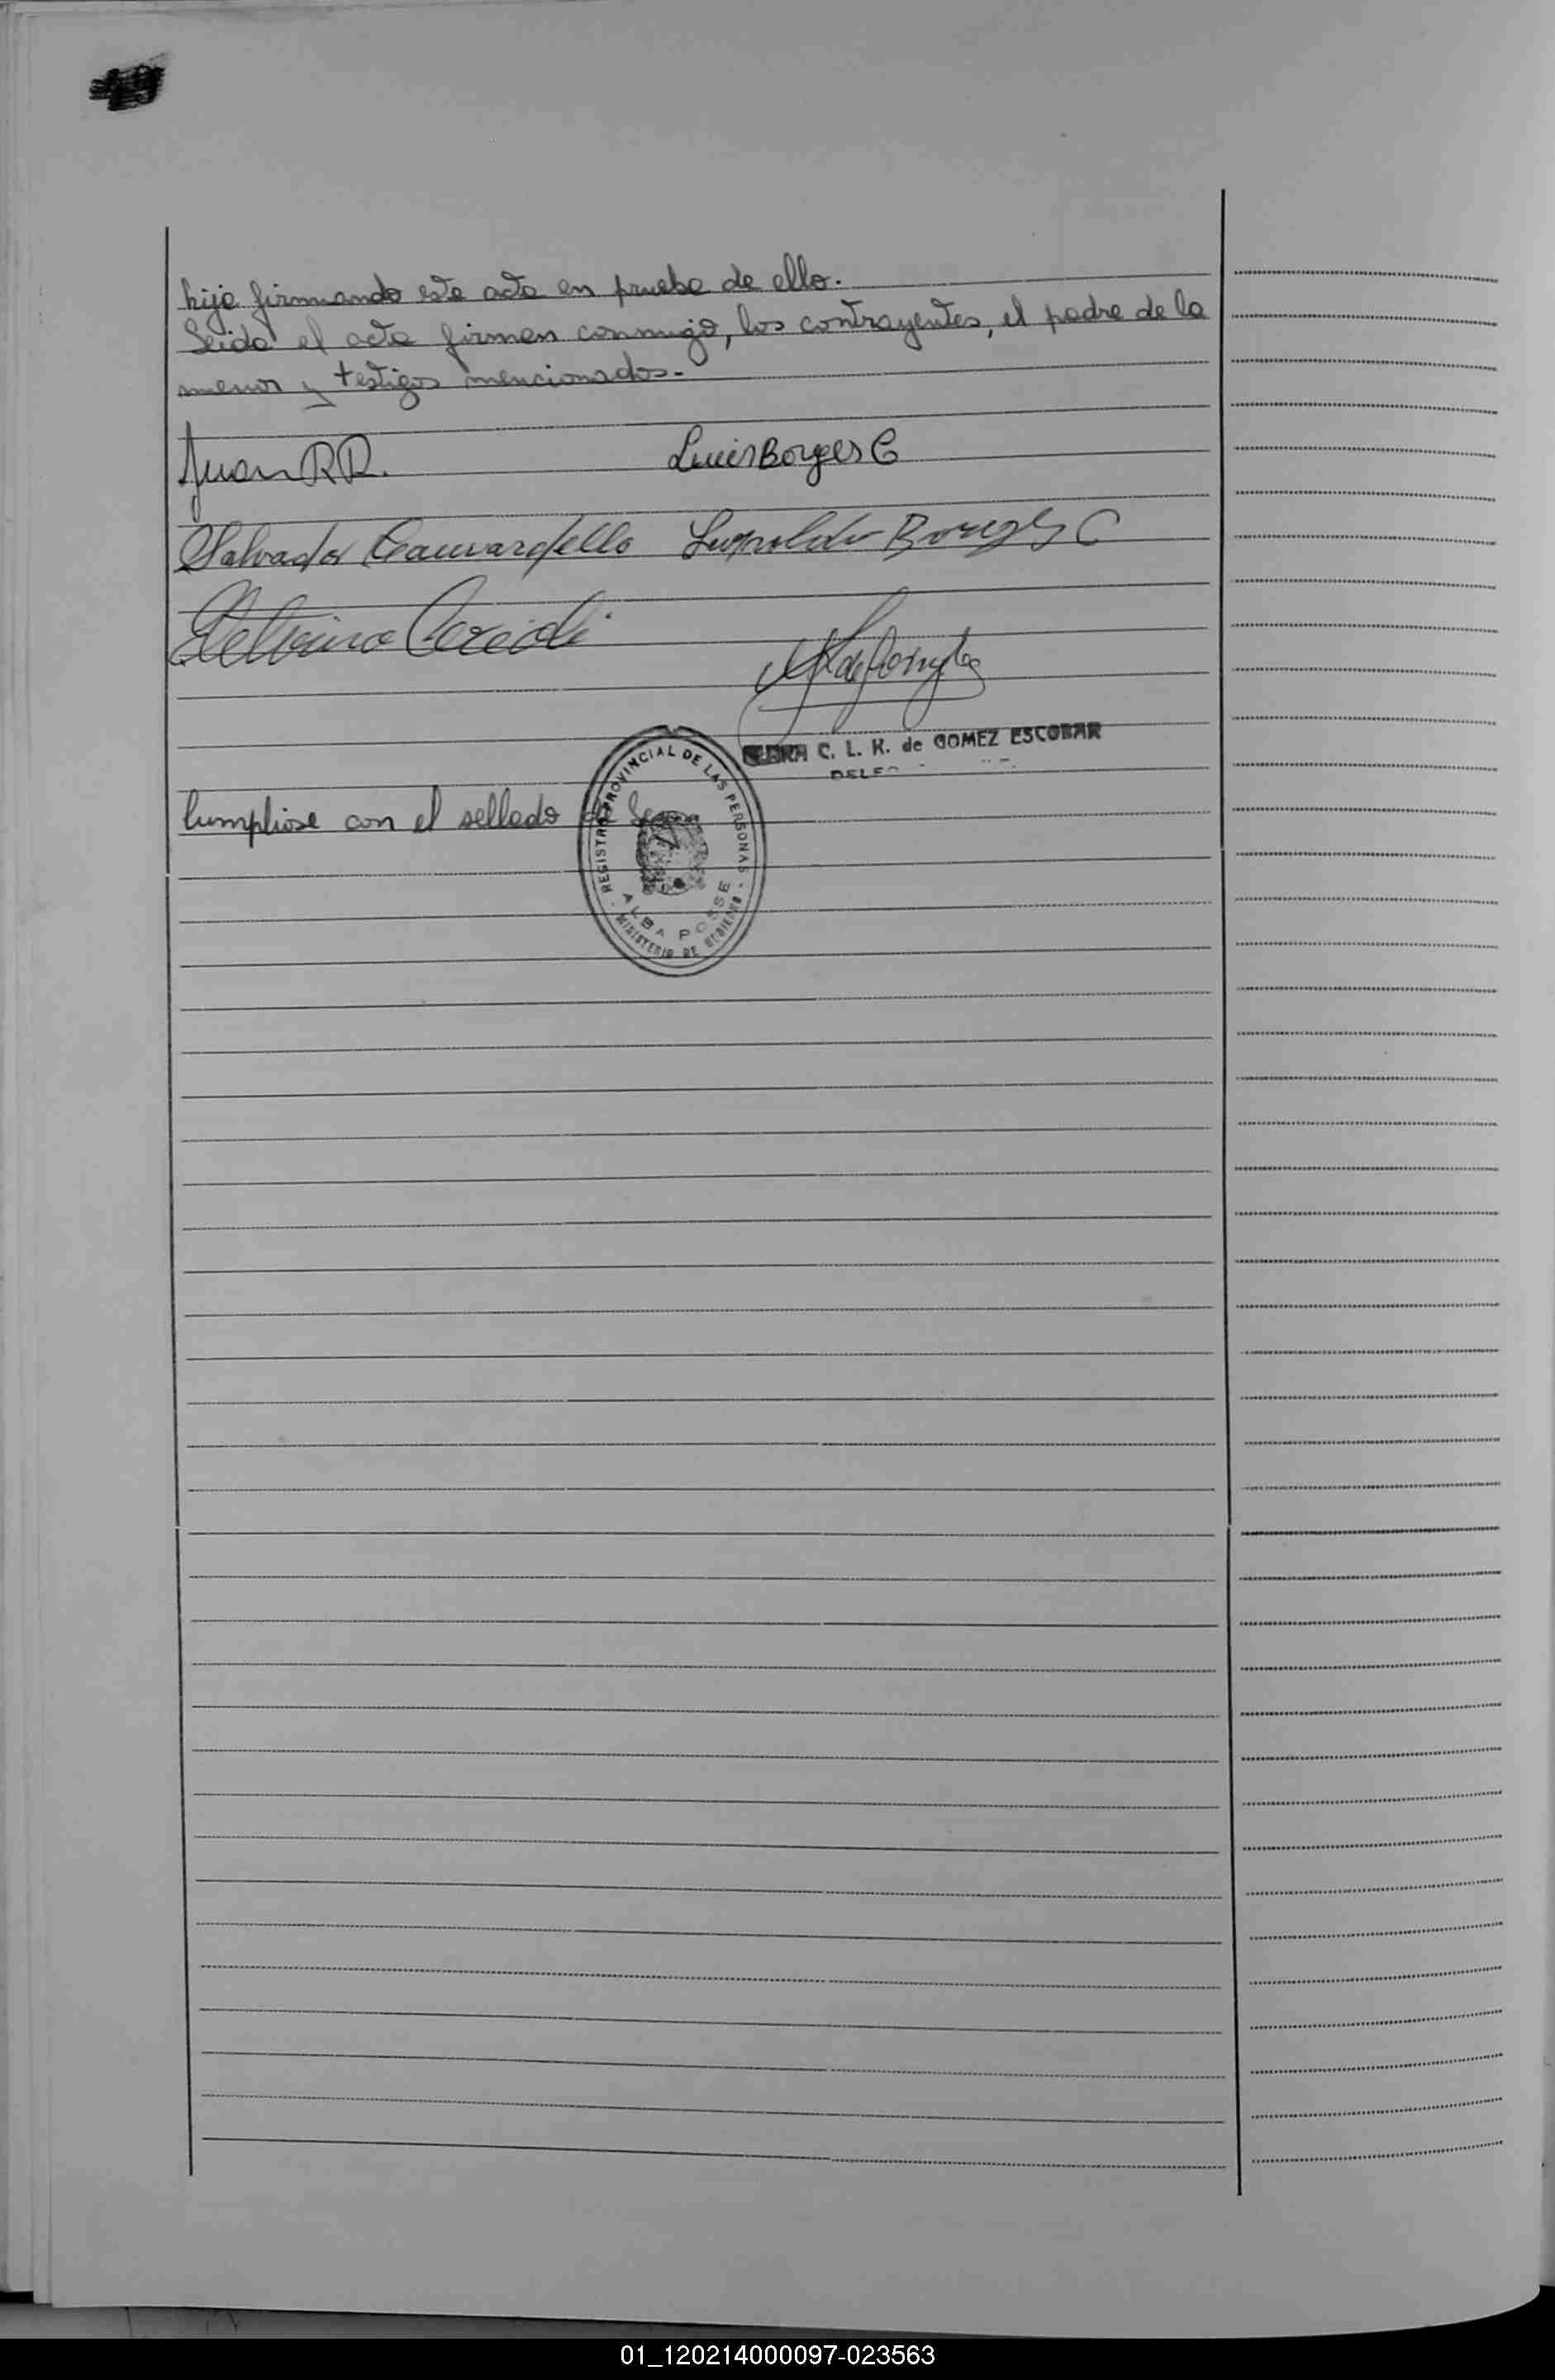 hija firmando este acta en prueba de ello.
Leida el acta firman conmigo, los contrayentes, el padre de la
menor y testigos mencionados.-
Juan R R. Luis Borges C
Salvador Leopoldo Borges C
C. L. K. de GOMEZ ESCOBAR
Cumpliose con el sellado de Ley
REGISTRO PROVINCIAL DE LAS PERSONAS
ALBA POSSE
MINISTERIO DE GOBIERNO
01_120214000097-023563